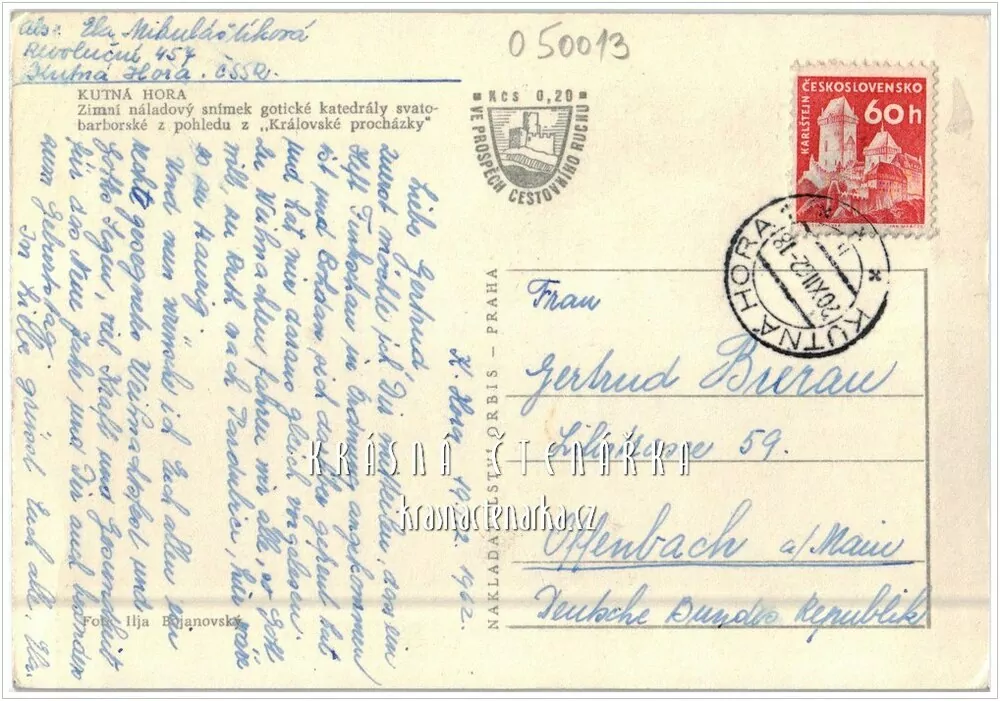 Abs: Ela Mikuláštíková
Revoluční 457
Kutná Hora. ČSSR.
050013
KUTNÁ HORA
Zimní náladový snímek gotické katedrály svato-
barborské z pohledu z „Královské procházky"
Kčs 0,20
VE PROSPĚCH CESTOVNÍHO RUCHU
ČESKOSLOVENSKO
60h
KARLŠTEJN
KUTNÁ HORA
20.XII.62-18
K. Hora 19./12. 1962.
Liebe Gertrud,
Zuerst möchte ich Dir mitteilen, dass ein
Heft Funkschau in Ordnung angekommen
ist und Bohouš sich darüber gefreut hat
und hat mir daraus gleich vorgelesen.
Zu Weihnachten fahren wir alle, so Gott
will, zu Ruth nach Pardubice, hier wäre
es zu traurig.
Und nun wünsche ich Euch allen ein
recht gesegnetes Weihnachtsfest und
Gottes Segen, viel Kraft und Gesundheit
fürs ganze Neue Jahr und Dir auch besonders
zum Geburtstag.
In Liebe grüsst Euch alle, Ela
Frau
Gertrud Brerau
Lilistrasse 59.
Offenbach a/Main
Deutsche Bundes Republik
NAKLADATELSTVÍ ORBIS — PRAHA
KRÁSNÁ ČTENÁŘKA
krasnactenarka.cz
Foto Ilja Bojanovský